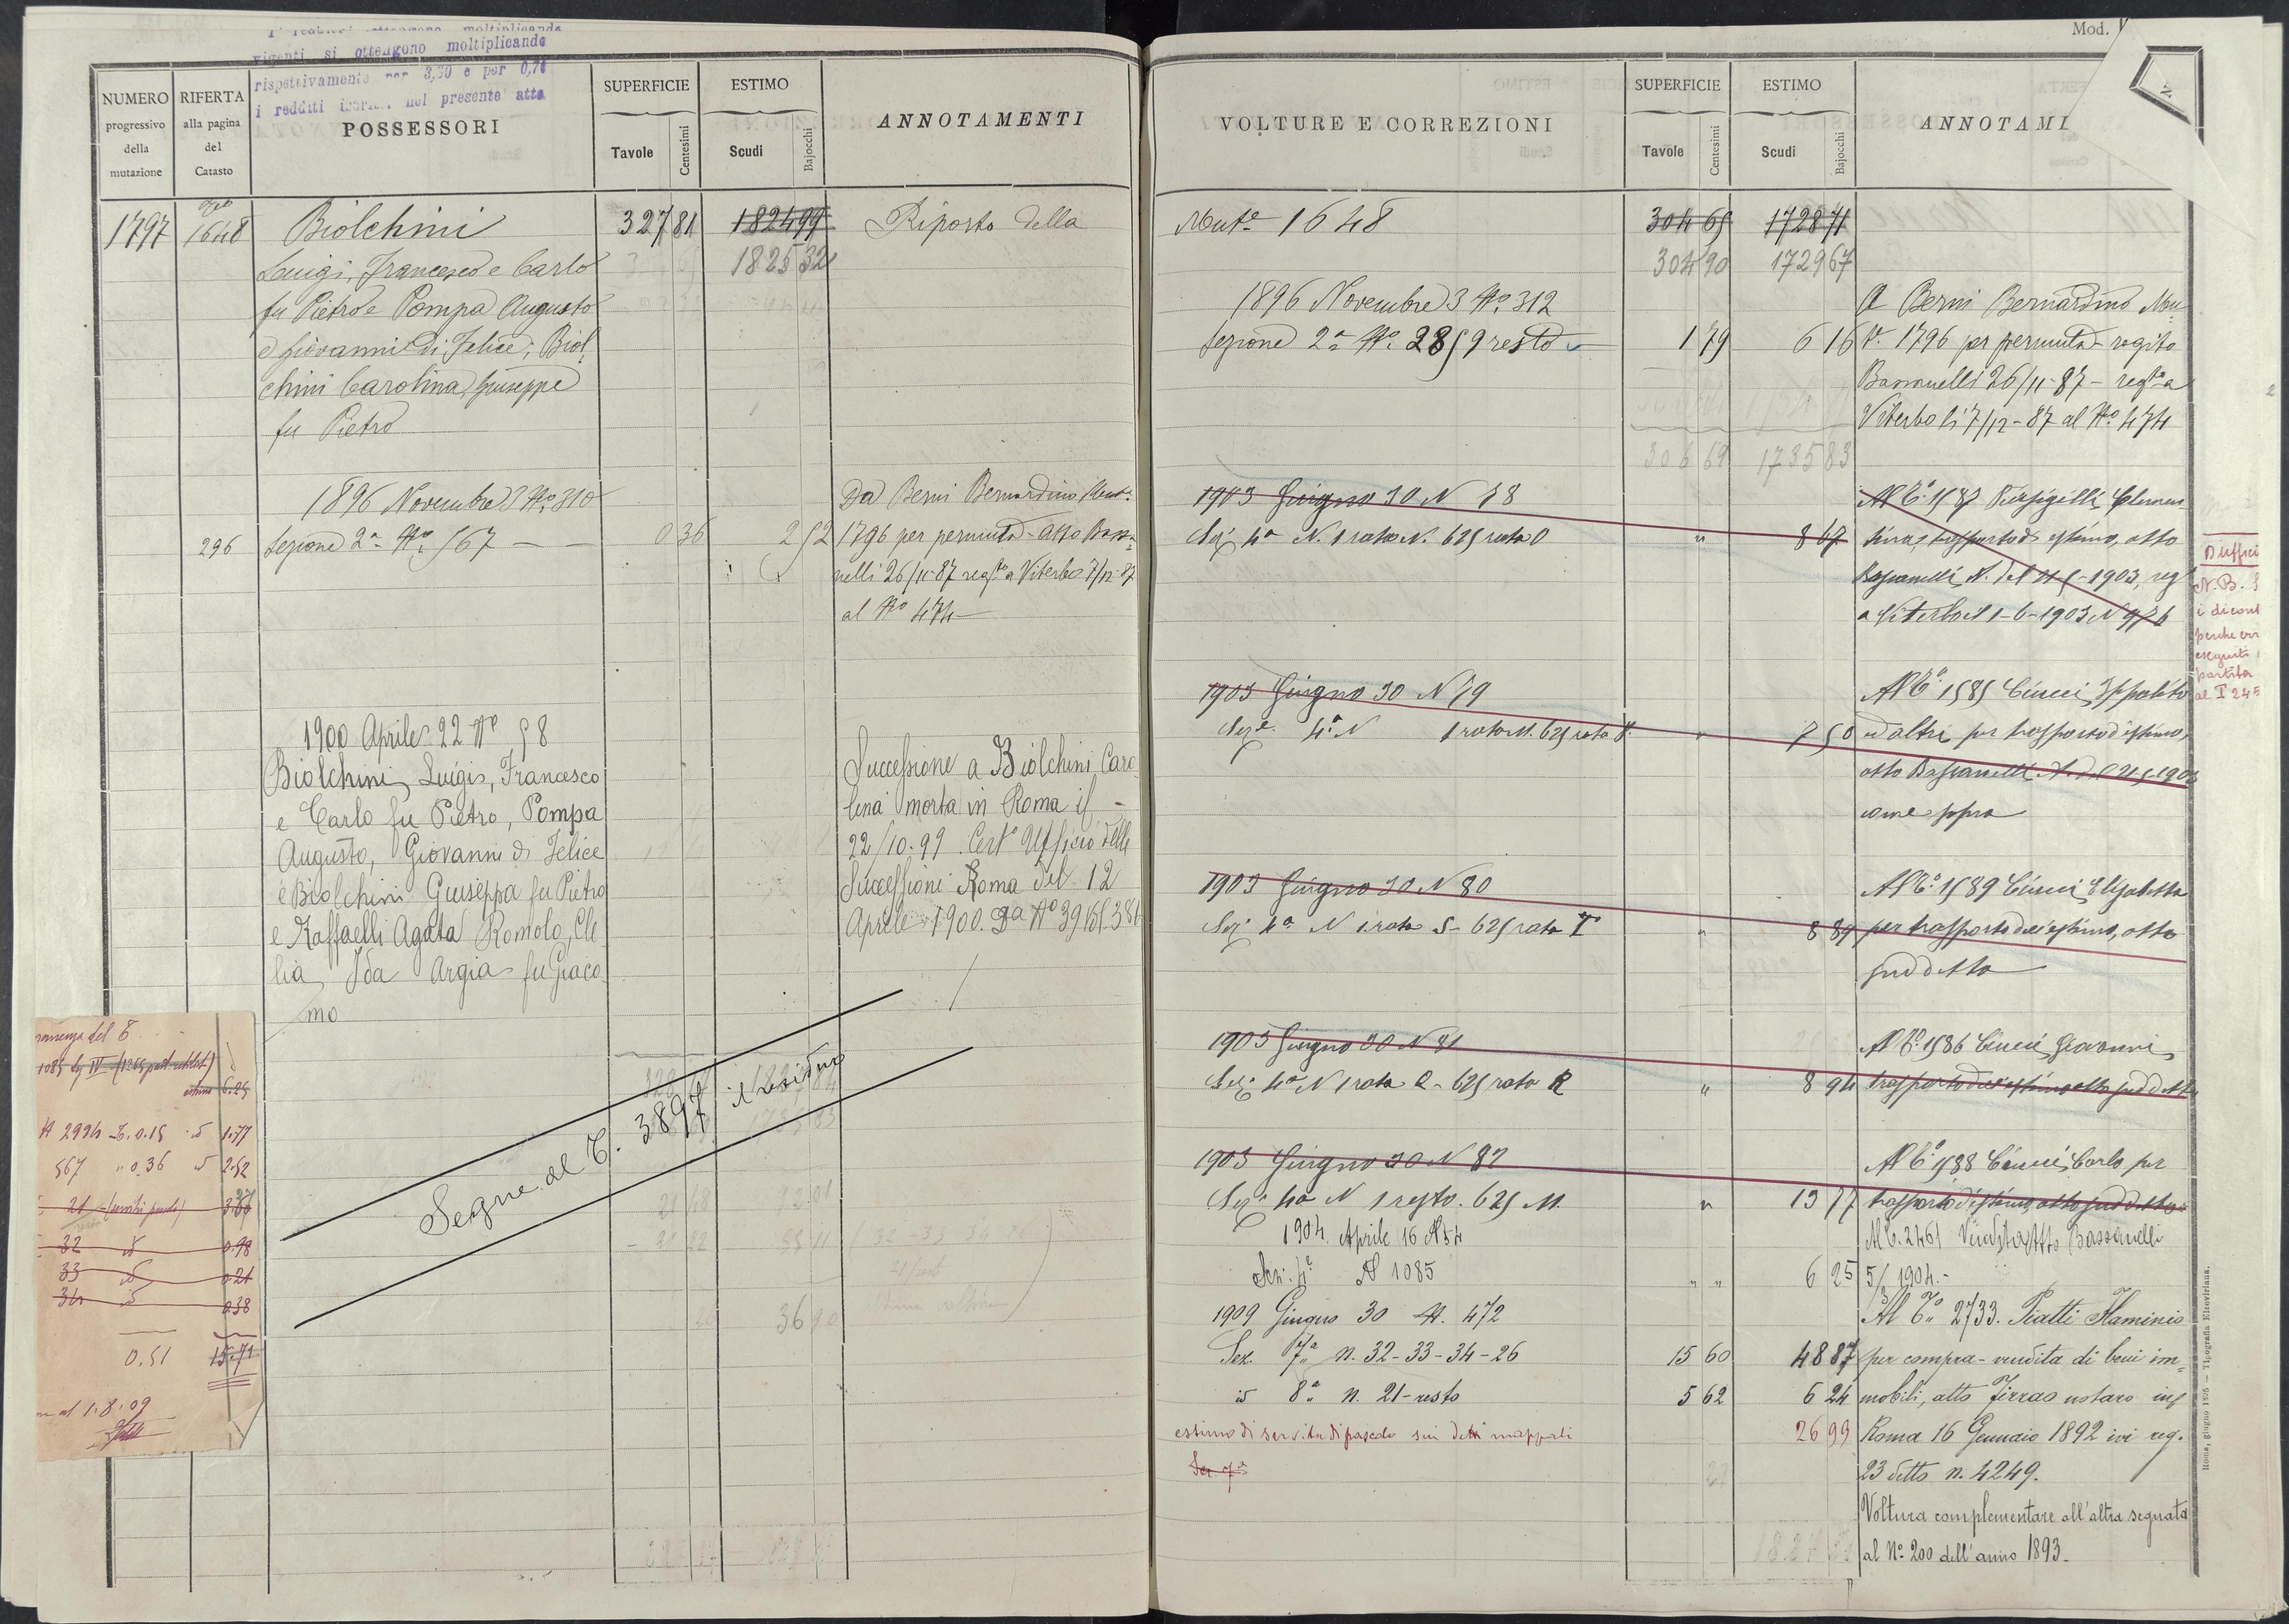 vigenti si ottengono moltiplicando
rispettivamente per 3,30 e per 0,70
i redditi nel presente atto
NUMERO
progressivo
della
mutazione
RIFERTA
alla pagina
del
Catasto
POSSESSORI
SUPERFICIE
Tavole
Centesimi
ESTIMO
Scudi
Bajocchi
ANNOTAMENTI
1797 1648 Biolchini 327 81 1824 99 Riporto della
Luigi, Francesco e Carlo 1825 32
fu Pietro e Pompa Augusto
e Giovanni di Felice; Biol
chini Carolina, Giuseppe
fu Pietro
1896 Novembre 3 No. 310 Da Berni Bernardino Mut.
296 Sezione 2a No. 567 0 36 2 52 1796 per permuta - atto Bassa
nelli 26/11-87 regto a Viterbo 7/12-87
al No 474
1900 Aprile 22 No 58
Biolchini Luigi, Francesco Successione a Biolchini Caro
e Carlo fu Pietro, Pompa lina morta in Roma il
Augusto, Giovanni di Felice 22/10.99. Certo Ufficio delle
e Biolchini Giuseppa fu Pietro Successioni Roma del 12
e Raffaelli Agata Romolo, Cle Aprile 1900.
lia Ida Argia fu Giaco
mo
Segue al T. 3897 il residuo
36 90
del T.
1085
estimo 6.25
2994 0.15 id 1.77
567 " 0.36 id 2.52
21
32 id 0.98
33 id 0.21
34 id 0.38
0.51 15.71
1.8.09
Mod.
VOLTURE E CORREZIONI
SUPERFICIE
Tavole
Centesimi
ESTIMO
Scudi
Bajocchi
ANNOTAMI
Muta 1648 304 69 1728 71
304 90 1729 67
1896 Novembre 3 No. 312 A Berni Bernardino Mu
Sezione 2a No. 2859 resto 1 79 6 16 t. 1796 per permuta - rogito
Bassanelli 26/11-87 - regto a
Viterbo li 7/12-87 al No. 474
306 69 1735 83
1903 Giugno 30 N 78 Al To. 1587 Clemen
Sez. 4a N. 1 rata N. 625 rata O " 8 67 tina, trasporto di estimo, atto
Bassanelli A. del 21-5-1903, reg
a Viterbo il 1-6-1903 N 976
1903 Giugno 30 N 79 Al To. 1585 Ciucci Ippolito
Seze. 4a N 1 rata 625 rata " 7 50 ed altri per trasporto d'estimo,
atto Bassanelli A. del 21-5-1903
come sopra
1903 Giugno 30 N 80 Al To. 1589 Ciucci Elisabetta
Sez. 4a N 1 rata S - 625 rata T " 8 89 per trasporto dell'estimo, atto
suddetto
1903 Giugno 30 N 81 Al To. 1586 Ciucci Giovanni
Sez. 4a N 1 rata Q - 625 rata R " 8 94 trasporto dell'estimo atto suddetto
1903 Giugno 30 N 82 Al To. 1588 Ciucci Carlo per
Sez. 4a N 1 resto. 625 M. " 13 77 trasporto d'estimo, atto suddetto
1904. Aprile 16 N 54 Al T. 2461 Vendita Atto Bassanelli
Sez. 4a N 1085 " " 6 25 5/3 1904.-
1909 Giugno 30 N. 472 Al To. 2733. Piatti Flaminio
Sez. 7a n. 32-33-34-26 15 60 48 87 per compra-vendita di beni im=
id 8a n. 21-resto 5 62 6 24 mobili, atto Firrao notaro in
estimo di servitù di pascolo sui detti mappali 26 99 Roma 16 Gennaio 1892 ivi reg.
Sez. 7a 23 detto n. 4249.
Voltura complementare all'altra segnata
al No. 200 dell'anno 1893.
N.B.
partita
al T 245
Roma, giugno 1895 — Tipografia Elzeviriana.